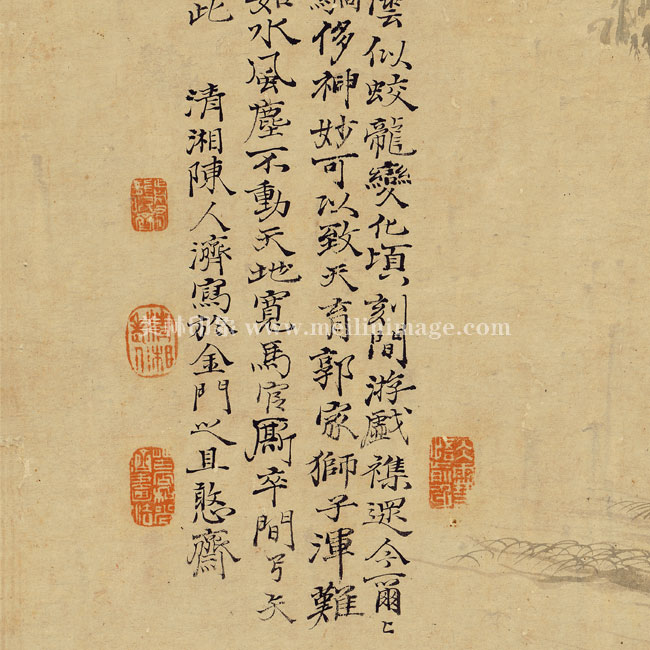 似蛟龍變化頃刻間游戲襍遝今爾〻
侈神妙可以致天育郭家獅子渾難
如水風塵不動天地寬馬官廝卒間弓矢
此　清湘陳人濟寫於金門之且憨齋
www.meilinimage.com